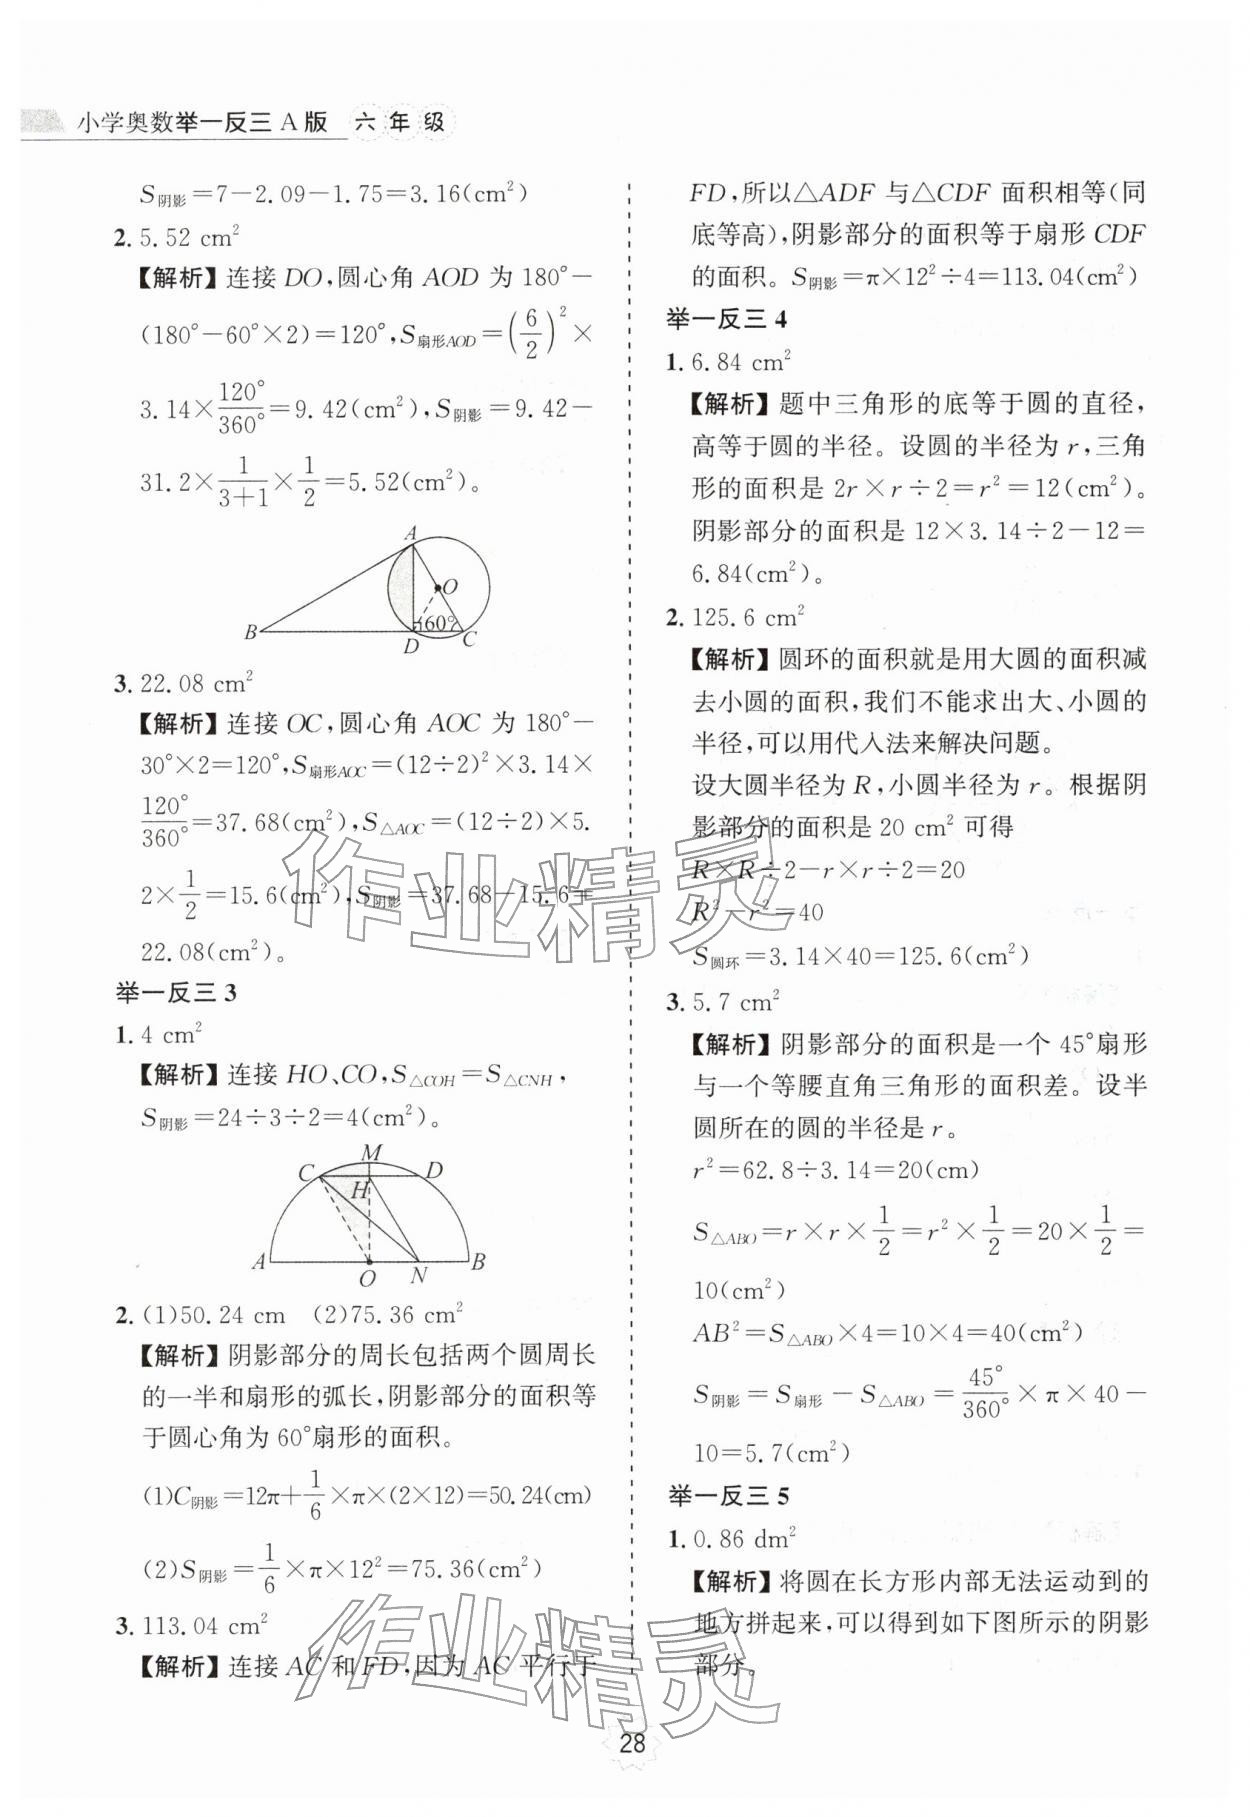 小学奥数举一反三A版 六年级
S阴影=7-2.09-1.75=3.16(cm²)
2. 5.52 cm²
【解析】连接 DO,圆心角 AOD 为 180°-
(180°-60°×2)=120°,S扇形AOD=(6/2)²×
3.14×120°/360°=9.42(cm²),S阴影=9.42-
31.2×1/(3+1)×1/2=5.52(cm²)。
A
O
60°
B
D
C
3. 22.08 cm²
【解析】连接 OC,圆心角 AOC 为 180°-
30°×2=120°,S扇形AOC=(12÷2)²×3.14×
120°/360°=37.68(cm²),S△AOC=(12÷2)×5.
2×1/2=15.6(cm²),S阴影=37.68-15.6=
22.08(cm²)。
举一反三3
1. 4 cm²
【解析】连接 HO、CO,S△COH=S△CNH,
S阴影=24÷3÷2=4(cm²)。
M
C
D
H
A
O
N
B
2. (1)50.24 cm (2)75.36 cm²
【解析】阴影部分的周长包括两个圆周长
的一半和扇形的弧长,阴影部分的面积等
于圆心角为60°扇形的面积。
(1)C阴影=12π+1/6×π×(2×12)=50.24(cm)
(2)S阴影=1/6×π×12²=75.36(cm²)
3. 113.04 cm²
【解析】连接 AC 和 FD,因为 AC 平行于
FD,所以△ADF 与△CDF 面积相等(同
底等高),阴影部分的面积等于扇形 CDF
的面积。S阴影=π×12²÷4=113.04(cm²)
举一反三4
1. 6.84 cm²
【解析】题中三角形的底等于圆的直径,
高等于圆的半径。设圆的半径为 r,三角
形的面积是 2r×r÷2=r²=12(cm²)。
阴影部分的面积是 12×3.14÷2-12=
6.84(cm²)。
2. 125.6 cm²
【解析】圆环的面积就是用大圆的面积减
去小圆的面积,我们不能求出大、小圆的
半径,可以用代入法来解决问题。
设大圆半径为 R,小圆半径为 r。根据阴
影部分的面积是 20 cm² 可得
R×R÷2-r×r÷2=20
R²-r²=40
S圆环=3.14×40=125.6(cm²)
3. 5.7 cm²
【解析】阴影部分的面积是一个 45°扇形
与一个等腰直角三角形的面积差。设半
圆所在的圆的半径是 r。
r²=62.8÷3.14=20(cm)
S△ABO=r×r×1/2=r²×1/2=20×1/2=
10(cm²)
AB²=S△ABO×4=10×4=40(cm²)
S阴影=S扇形-S△ABO=45°/360°×π×40-
10=5.7(cm²)
举一反三5
1. 0.86 dm²
【解析】将圆在长方形内部无法运动到的
地方拼起来,可以得到如下图所示的阴影
部分。
作业精灵
作业精灵
28